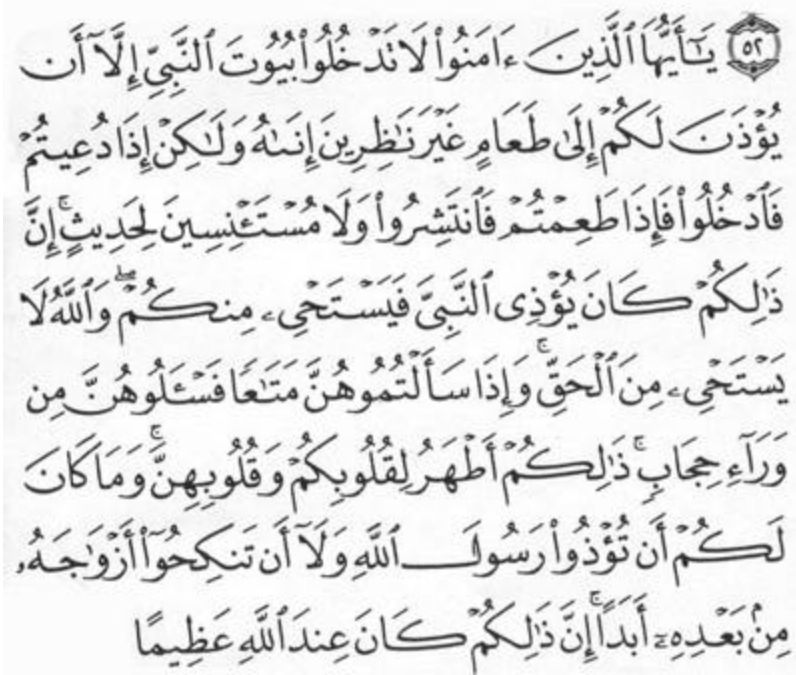 ﴿٥٢﴾ يَـٰٓأَيُّهَا ٱلَّذِينَ ءَامَنُوا۟ لَا تَدْخُلُوا۟ بُيُوتَ ٱلنَّبِىِّ إِلَّآ أَن
يُؤْذَنَ لَكُمْ إِلَىٰ طَعَامٍ غَيْرَ نَـٰظِرِينَ إِنَىٰهُ وَلَـٰكِنْ إِذَا دُعِيتُمْ
فَٱدْخُلُوا۟ فَإِذَا طَعِمْتُمْ فَٱنتَشِرُوا۟ وَلَا مُسْتَـْٔنِسِينَ لِحَدِيثٍ ۚ إِنَّ
ذَٰلِكُمْ كَانَ يُؤْذِى ٱلنَّبِىَّ فَيَسْتَحْىِۦ مِنكُمْ ۖ وَٱللَّهُ لَا
يَسْتَحْىِۦ مِنَ ٱلْحَقِّ ۚ وَإِذَا سَأَلْتُمُوهُنَّ مَتَـٰعًا فَسْـَٔلُوهُنَّ مِن
وَرَآءِ حِجَابٍ ۚ ذَٰلِكُمْ أَطْهَرُ لِقُلُوبِكُمْ وَقُلُوبِهِنَّ ۚ وَمَا كَانَ
لَكُمْ أَن تُؤْذُوا۟ رَسُولَ ٱللَّهِ وَلَآ أَن تَنكِحُوٓا۟ أَزْوَٰجَهُۥ
مِنۢ بَعْدِهِۦٓ أَبَدًا ۚ إِنَّ ذَٰلِكُمْ كَانَ عِندَ ٱللَّهِ عَظِيمًا